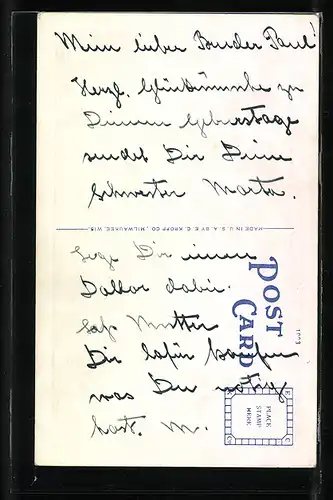 Mein lieber Bruder Paul!
Herzl. Glückwünsche zu
Deinem Geburtstage
sendet Dir Deine
Schwester Marta.
MADE IN U.S.A. BY E. C. KROPP CO., MILWAUKEE, WIS.
Lege Dir einen
Dollar dabei.
Laß Mutter
Dir dafür kaufen
was Du nötig
hast. M.
POST CARD
PLACE
STAMP
HERE